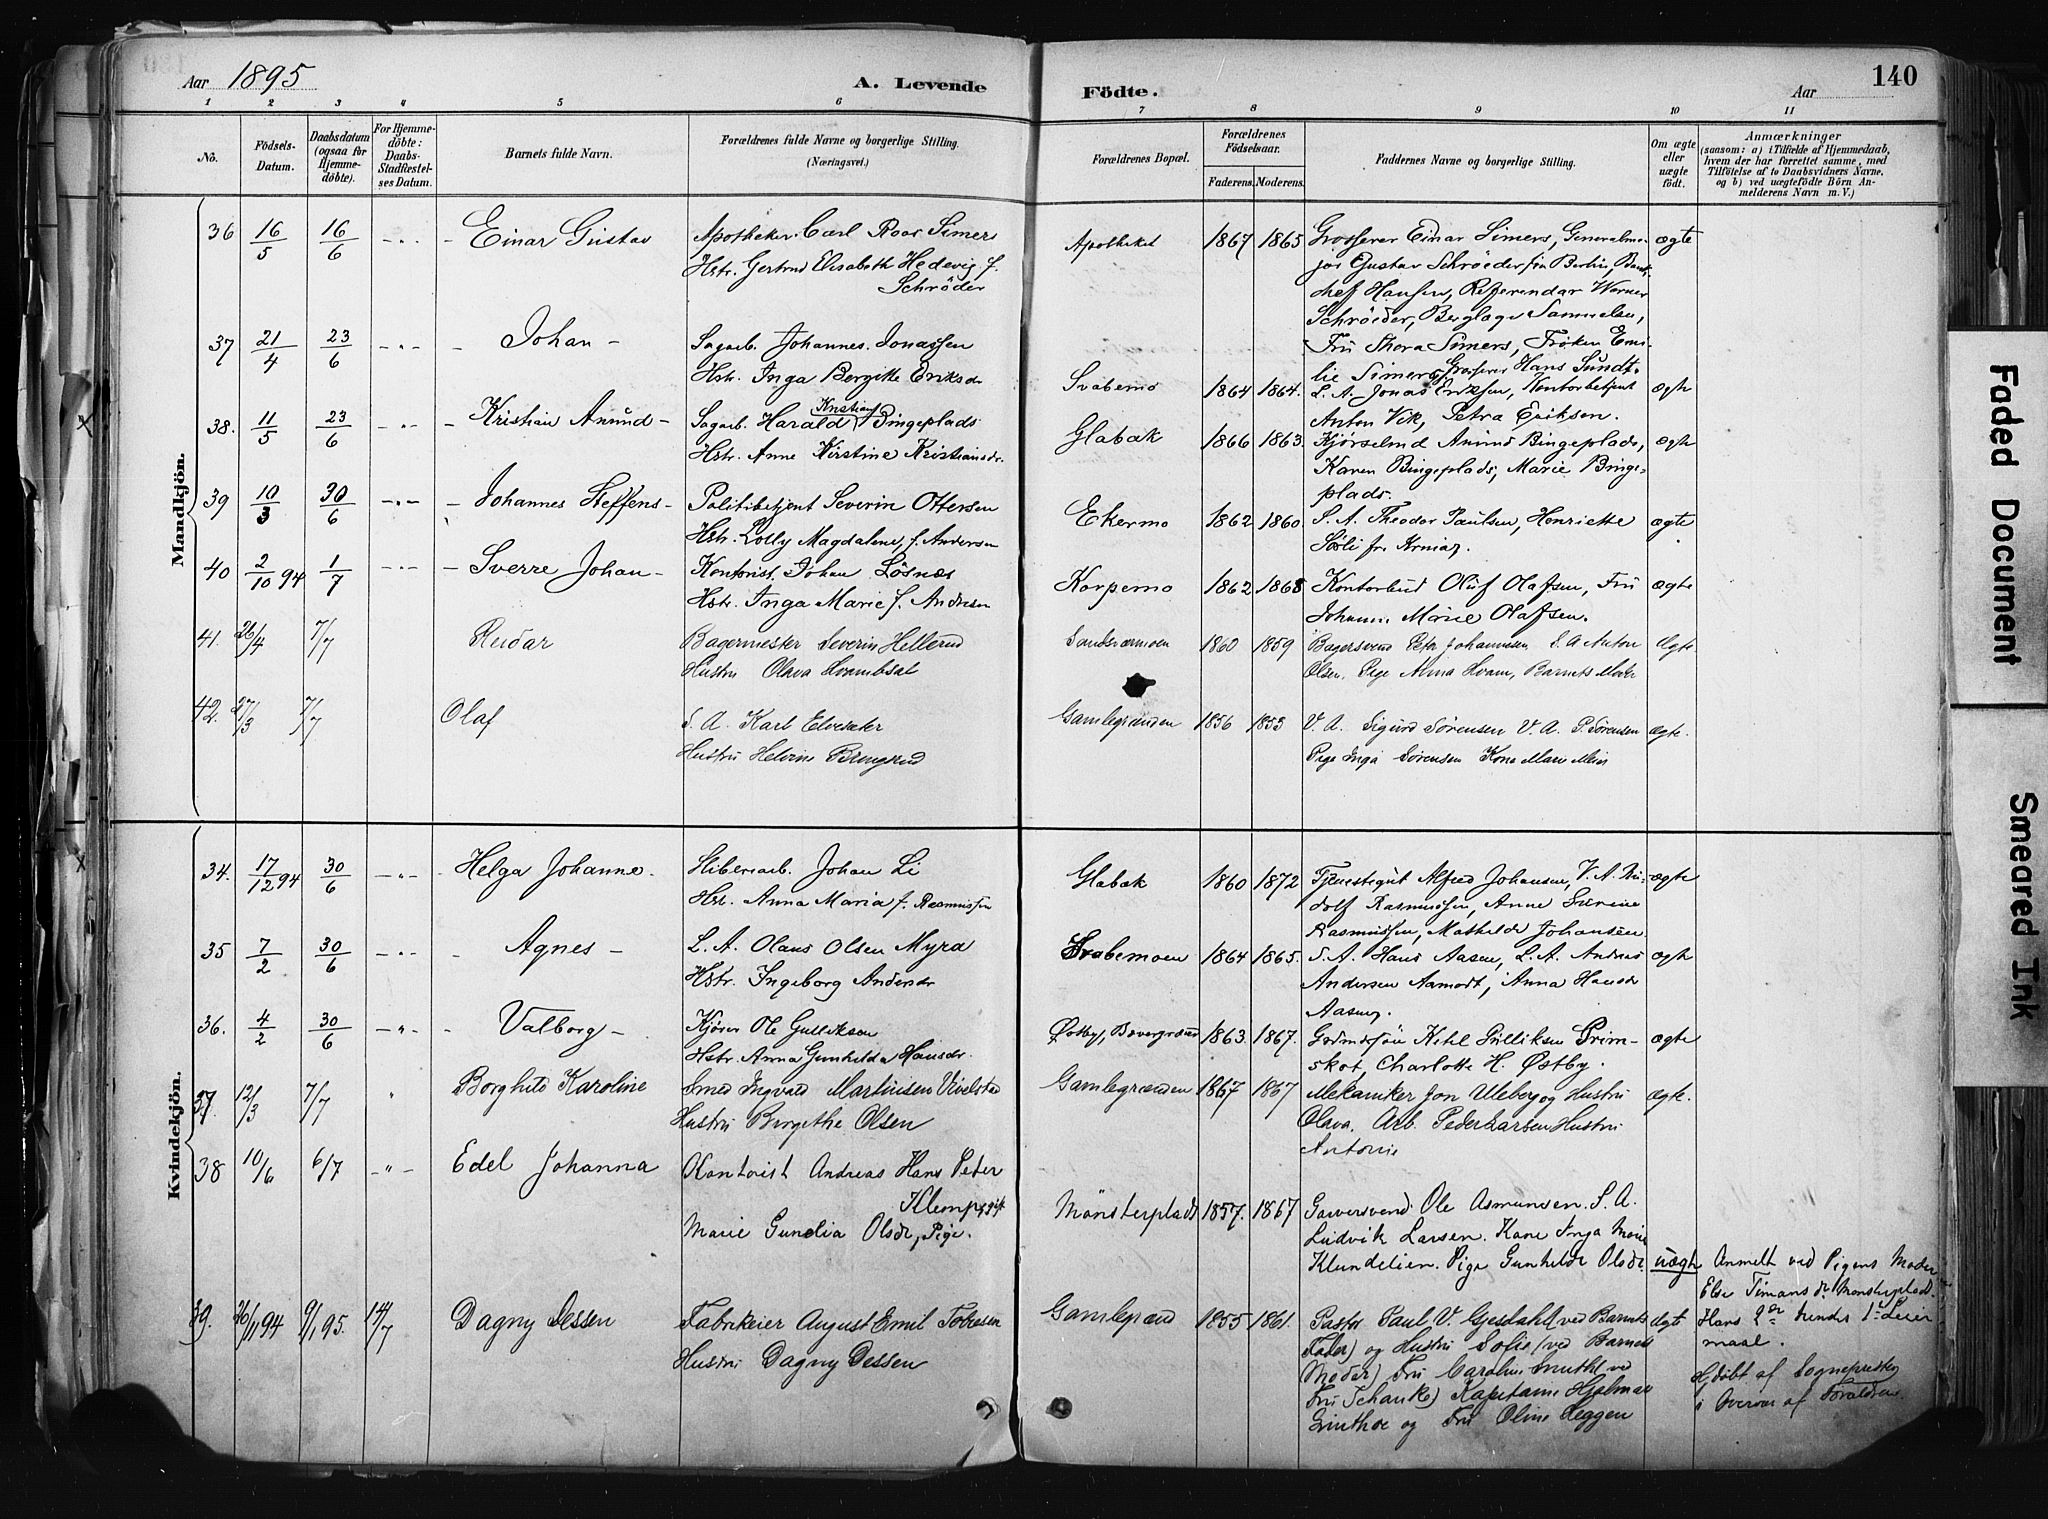 Aar 1895
A. Levende
Födte.
Aar
140
1 2 3 4 5 6 7 8 9 10 11
No.
Födsels-
Datum.
Daabsdatum
(ogsaa for
Hjemme-
döbte).
For Hjemme-
döbte:
Daabs-
Stadfæstel-
ses Datum.
Barnets fulde Navn.
Forældrenes fulde Navne og borgerlige Stilling.
(Næringsvei.)
Forældrenes Bopæl.
Forældrenes
Födselsaar.
Faderens. Moderens.
Faddernes Navne og borgerlige Stilling.
Om ægte
eller
uægte
födt.
Anmærkninger
(saasom: a) i Tilfælde af Hjemmedaab,
hvem der har forrettet samme, med
Tilföielse af to Daabsvidners Navne,
og b) ved uægtefödte Börn An-
melderens Navn m. V.)
Mandkjön.
36 16/5 16/6 -"- Einar Gustav Apotheker Carl Roar Simers Apotheket 1867 1865 Grosserer Einar Simers, Generalma- ægte
Hstr. Gertrud Elisabeth Hedevig f. jor Gustav Schröeder fra Berlin, Bank-
Schröder chef Hansen, Referendar Werner
Schröeder, Samuelsen,
37 21/4 23/6 -"- Johan - Sagarb. Johannes Jonassen Fru Thora Simers, Frøken Emi-
lie Simers, Grosserer Hans Sundt.
Hstr. Inga Bergitte Eriksdr Svabemo 1864 1864. L. A. Jonas Eriksen, Kontorbetjent ægte
Anton Vik, Petra Eriksen.
38. 11/5 23/6 -"- Kristian Anund - Sagarb. Harald Kristian Bingeplads Glabak 1866 1863. Anund Bingeplads, ægte
Hstr. Anne Kirstine Kristiansdr. Karen Bingeplads, Marie Binge-
plads.
39 10/3 30/6 -"- Johannes Steffens - Politibetjent Severin Ottersen Ekermo 1862 1860. S. A. Theodor Paulsen, Henriette ægte
Hstr. Lolly Magdalene, f. Andersen
40 2/10 94 1/7 -"- Sverre Johan - Kontorist Johan Løsnæs Korpemo 1862 1868 Kontorbud Oluf Olafsen, Fru ægte
Hstr. Inga Marie f. Andersen Marie Olafsen.
41. 26/4 7/7 Reidar Bagermester Severin Hellerud Sandsværmoen 1860 1859 Bagersvend Peter Johannesen S. A. Anton ægte
Hustru Olava Olsen. Pige Anna Hvam, Barnets Moder
42. 27/3 7/7 Olaf S. A. Karl Elvesæter Gamlegrænden 1856 1853 V. A. Sigurd Sørensen V. A. P. Sørensen ægte.
Hustru Helvine Pige Inga Sørensen Kone Marie
Kvindekjön.
34. 17/12 94 30/6 -"- Helga Johanne. Sliberiarb. Johan Li Glabak 1860 1872 Tjenestegut Alfred Johansen, V. A. Ru- ægte
Hstr. Anna Maria f. Rasmussen dolf Rasmussen, Anne Gurine
Rasmussen, Mathilde Johansen.
35 7/2 30/6 -"- Agnes - L. A. Olaus Olsen Myra Svabemoen 1864 1865. S. A. Hans Aasen, L. A. Andreas ægte
Hstr. Ingeborg Andersdr Andersen Aamodt, Anna Hansdr
36. 4/2 30/6 -"- Valborg - Kjører Ole Gulliksen Østby, Bævergrænd 1863. 1867. Ketil Gulliksen Grim- ægte
Hstr. Anna Gunhilda Hansdr. skot, Charlotte H. Østby.
37. 12/3 7/7 " Borghild Karoline Smed Ingvald Martinisen Gamlegrænden 1867 1867 Mekaniker Jon Uleberg og Hustru ægte.
Hustru Birgithe Olsen Olava, Arb. Peder Larsen Hustru
Antonie
38 10/6 6/7 -"- Edel Johanna Kontorist Andreas Hans Peter
Mønsterplads 1857. 1867 Garversvend Ole Asmunsen. S. A.
Marie Gunelia Olsdr, Pige. Ludvik Larsen. Kone Inga Marie
Klundelien. Pige Gunhilde Olsdr. uægte Anmelt ved Pigens Moder
Else
39. 26/11 94 9/1 95. 14/7 Dagny Dessen Fabrikeier August Emil Tobiesen Gamlegrænd 1855 1861. Pastor Paul V. Gjesdahl (ved Barnets ægte Hans 2den hendes 1ste Leier
Hustru Dagny Dessen Fader) og Hustru Sofie (ved Barnets maal.
Moder) Fru Caroline Smith ved Hjdøbt af Sognepresten
Fru Schanke) Kapitaine Hjalmar i Overvær af Forældrene
og Fru Oline Heggen
Faded Document
Smeared Ink